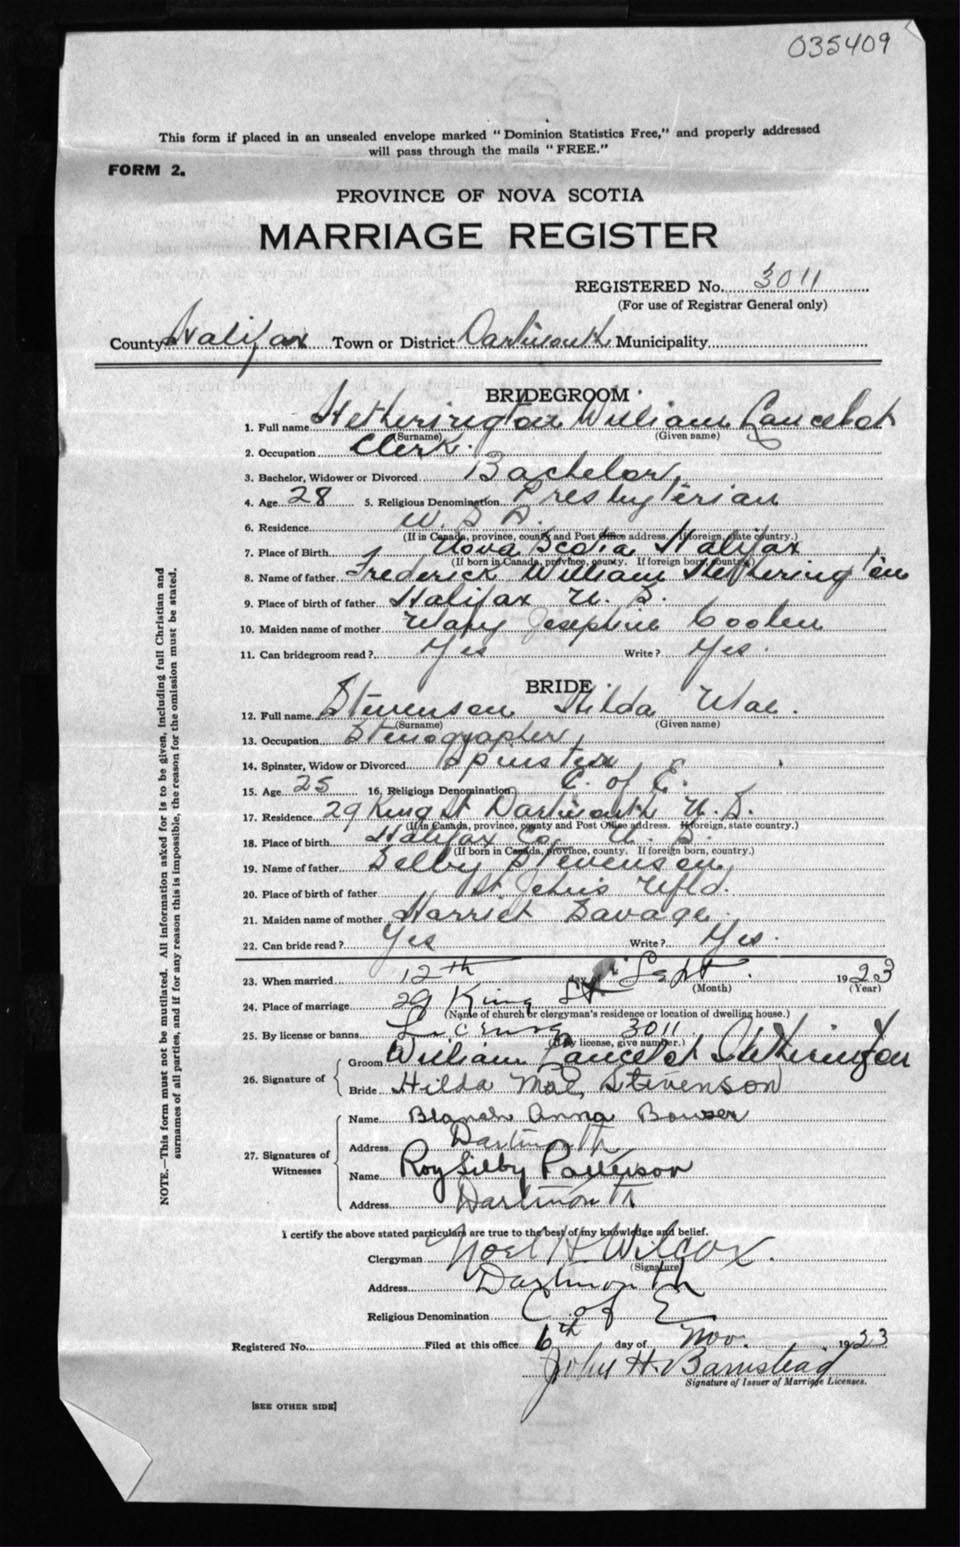 035409
This form if placed in an unsealed envelope marked "Dominion Statistics Free," and properly addressed
will pass through the mails "FREE."
FORM 2.
PROVINCE OF NOVA SCOTIA
MARRIAGE REGISTER
REGISTERED No. 3011
(For use of Registrar General only)
County Halifax Town or District Dartmouth Municipality
BRIDEGROOM
1. Full name Hetherington William Lancelot
(Surname) (Given name)
2. Occupation Clerk.
3. Bachelor, Widower or Divorced Bachelor
4. Age 28 5. Religious Denomination Presbyterian
6. Residence
(If in Canada, province, county and Post Office address. If foreign, state country.)
7. Place of Birth Nova Scotia Halifax
(If born in Canada, province, county. If foreign born, country.)
8. Name of father Frederick William Hetherington
9. Place of birth of father Halifax N. S.
10. Maiden name of mother Mary Josephine Coolen
11. Can bridegroom read? Yes Write? Yes.
BRIDE
12. Full name Stevenson Hilda Mae.
(Surname) (Given name)
13. Occupation Stenographer
14. Spinster, Widow or Divorced Spinster
15. Age 25 16. Religious Denomination C. of E.
17. Residence 29 King St Dartmouth N. S.
(If in Canada, province, county and Post Office address. If foreign, state country.)
18. Place of birth Halifax Co. N. S.
(If born in Canada, province, county. If foreign born, country.)
19. Name of father Selby Stevenson
20. Place of birth of father St Johns Nfld.
21. Maiden name of mother Harriet Savage.
22. Can bride read? Yes Write? Yes.
23. When married 12th day of Sept. 1923
(Month) (Year)
24. Place of marriage 29 King St
(Name of church or clergyman's residence or location of dwelling house.)
25. By license or banns License 3011
(If by license, give number.)
26. Signature of
Groom William Lancelot Hetherington
Bride Hilda Mae Stevenson
27. Signatures of Witnesses
Name Blanch Anna Bowser
Address Dartmouth
Name Roy Selby Patterson
Address Dartmouth
I certify the above stated particulars are true to the best of my knowledge and belief.
Clergyman Noel H Wilcox.
(Signature)
Address Dartmouth
Religious Denomination C. of E.
Registered No. Filed at this office 6th day of Nov. 1923
John H. Barnstead
Signature of Issuer of Marriage Licenses.
[SEE OTHER SIDE]
NOTE.—This form must not be mutilated. All information asked for is to be given, including full Christian and
surnames of all parties, and if for any reason this is impossible, the reason for the omission must be stated.